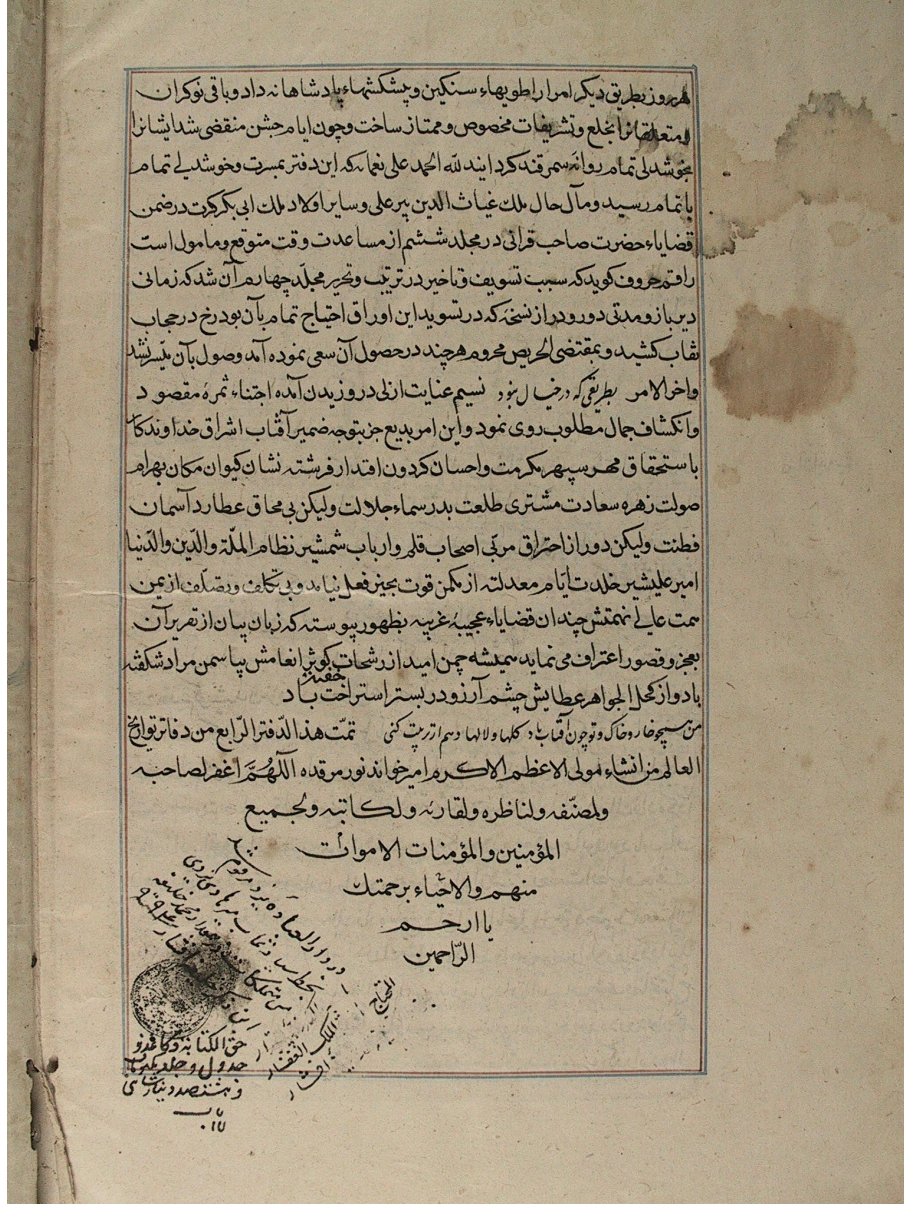 هر روز بطریق دیکر امرا را طویهاء سنکین و پیشکشهاء پادشاهانه داد و باقی نوکران
و متعلقانرا بخلع و تشریفات مخصوص و ممتاز ساخت و چون ایام جشن منقضی شد ایشانرا
بخوشدلی تمام روانهٔ سمرقند کردایند لله الحمد علی نعمائه که این دفتر بمسرت و خوشدلی تمام
باتمام رسید و مآل حال ملک غیاث الدین پیر علی و سایر اولاد ملک ابی بکر کرت در ضمن
قضایاء حضرت صاحب قرانی در مجلد ششم از مساعدت وقت متوقع و مامول است
راقم حروف کوید که سبب تسویف و تاخیر در ترتیب و تحریر مجلّد چهارم آن شد که زمانی
دیرباز و مدتی دور و دراز نسخهٔ که در تسوید این اوراق احتیاج تمام بآن بود رخ در حجاب
نقاب کشید و بمقتضی الحریص محروم هر چند در حصول آن سعی نموده آمد وصول بآن میّسر نشد
و اخر الامر بطریقی که در خیال نبود نسیم عنایت ازلی در وزیدن آمده اجتناء ثمرهٔ مقصود
و انکشاف جمال مطلوب روی نمود و این امر بدیع جز بتوجه ضمیر آفتاب اشراق خداوندکار
باستحقاق مهر سپهر مکرمت و احسان کردون اقتدار فرشته نشان کیوان مکان بهرام
صولت زهره سعادت مشتری طلعت بدر سماء جلالت ولیکن بی محاق عطارد آسمان
فطنت ولیکن دور از احتراق مربّی اصحاب قلم و ارباب شمشیر نظام الملّة والدّین والدّنیا
امیر علیشیر خلدت أیّام معدلته از مکمن قوت بحیز فعل نیامد و بی تکلف و تصلّف از یمن
سمت عالی نهمتش چندان قضایاء عجیبهٔ غریبه بظهور پیوسته که زبان بیان از تقریر آن
بعجز و قصور اعتراف می نماید همیشه چمن امید از رشحات کوثر انعامش بپا سمن مراد شکفته
باد و از کحل الجواهر عطایش چشم آرزو در بستر استراحت خفته باد
من همچو خار و خاک و تو چون آفتاب باد کلها و لالها دهم ار تربیت کنی تمّت هذا الدّفتر الرّابع من دفاتر تواریخ
العالم من انشاء مولی الاعظم الاکرم امیرخواند نور مرقده اللّهُمَّ اغفر لصاحبه
ولمصنّفه ولناظره ولقارئه ولکاتبه ولجمیع
المؤمنین والمؤمنات الاموات
منهم والاحیاء برحمتک
یا ارحم
الرّاحمین
در دار العباده یزد مرقوم شد
المحتاج
الملک الغفار
حق الکتابه و کاغذ و
جدول و جلد